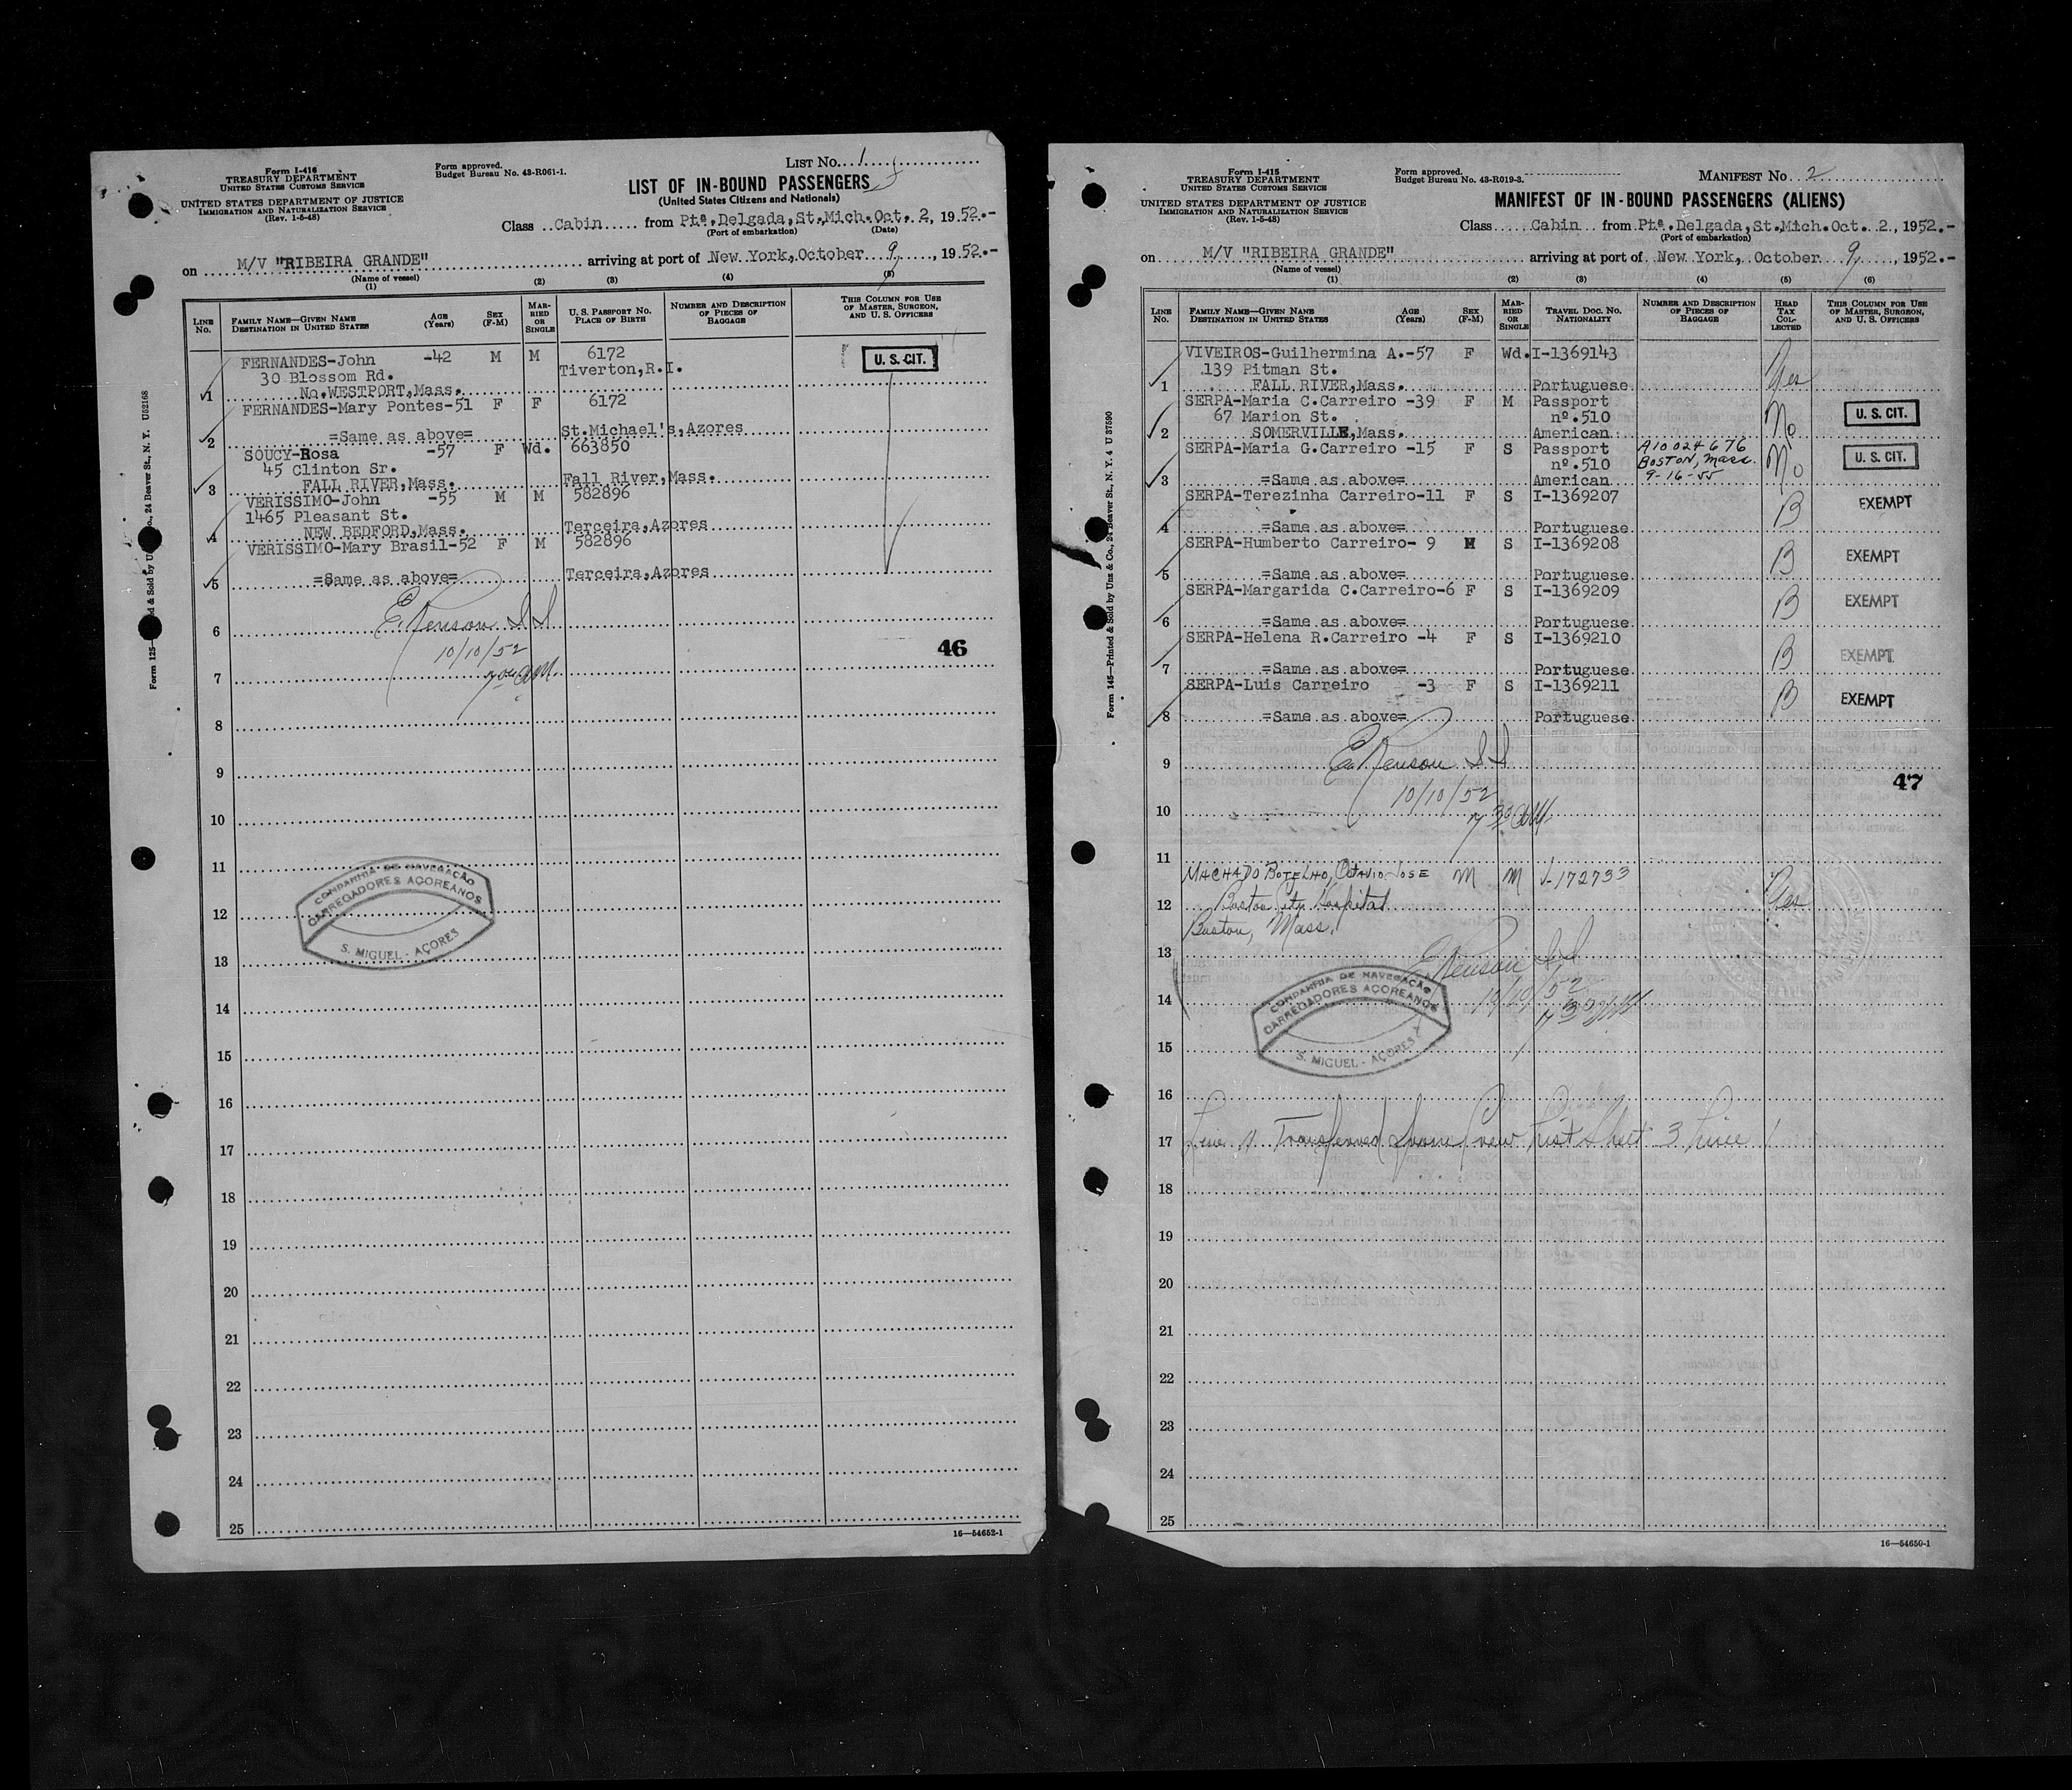 Form I-416
TREASURY DEPARTMENT
UNITED STATES CUSTOMS SERVICE
UNITED STATES DEPARTMENT OF JUSTICE
IMMIGRATION AND NATURALIZATION SERVICE
(Rev. 1-5-48)
Form approved.
Budget Bureau No. 43-R061-1.
LIST No. 1
LIST OF IN-BOUND PASSENGERS
(United States Citizens and Nationals)
Class Cabin from Ptª.Delgada,St.Mich.Oct. 2, 1952.-
(Port of embarkation) (Date)
on M/V "RIBEIRA GRANDE" arriving at port of New York, October 9, 1952.-
(Name of vessel)
(1) (2) (3) (4) (5)
LINE No. FAMILY NAME—GIVEN NAME DESTINATION IN UNITED STATES AGE (Years) SEX (F-M) MARRIED OR SINGLE U. S. PASSPORT NO. PLACE OF BIRTH NUMBER AND DESCRIPTION OF PIECES OF BAGGAGE THIS COLUMN FOR USE OF MASTER, SURGEON, AND U. S. OFFICERS
FERNANDES-John -42 M M 6172 U. S. CIT.
30 Blossom Rd. Tiverton,R.I.
1 No.WESTPORT,Mass.
FERNANDES-Mary Pontes-51 F F 6172
2 =Same as above= St.Michael's,Azores
SOUCY-Rosa -57 F Wd. 663850
45 Clinton Sr.
3 FALL RIVER,Mass. Fall River,Mass.
VERISSIMO-John -55 M M 582896
1465 Pleasant St.
4 NEW BEDFORD,Mass. Terceira,Azores
VERISSIMO-Mary Brasil-52 F M 582896
5 =Same as above= Terceira,Azores
6
10/10/52
46
7
8
9
10
11
COMPANHIA DE NAVEGAÇÃO
CARREGADORES AÇOREANOS
12
S. MIGUEL - AÇORES
13
14
15
16
17
18
19
20
21
22
23
24
25
16—54652-1
Form I-415
TREASURY DEPARTMENT
UNITED STATES CUSTOMS SERVICE
UNITED STATES DEPARTMENT OF JUSTICE
IMMIGRATION AND NATURALIZATION SERVICE
(Rev. 1-5-48)
Form approved.
Budget Bureau No. 43-R019-3.
MANIFEST No. 2
MANIFEST OF IN-BOUND PASSENGERS (ALIENS)
Class Cabin from Ptª.Delgada,St.Mich.Oct. 2, 1952.-
(Port of embarkation)
on M/V "RIBEIRA GRANDE" arriving at port of New York, October 9, 1952.-
(Name of vessel)
(1) (2) (3) (4) (5) (6)
LINE No. FAMILY NAME—GIVEN NAME DESTINATION IN UNITED STATES AGE (Years) SEX (F-M) MARRIED OR SINGLE TRAVEL DOC. NO. NATIONALITY NUMBER AND DESCRIPTION OF PIECES OF BAGGAGE HEAD TAX COLLECTED THIS COLUMN FOR USE OF MASTER, SURGEON, AND U. S. OFFICERS
VIVEIROS-Guilhermina A.-57 F Wd. I-1369143
139 Pitman St.
1 FALL RIVER,Mass. Portuguese Yes
SERPA-Maria C.Carreiro -39 F M Passport
67 Marion St. nº.510 No U. S. CIT.
2 SOMERVILLE,Mass. American
SERPA-Maria G.Carreiro -15 F S Passport A10 024 676
nº.510 BOSTON, Mass. No U. S. CIT.
3 =Same as above= American 9-16-55
SERPA-Terezinha Carreiro-11 F S I-1369207
4 =Same as above= Portuguese B EXEMPT
SERPA-Humberto Carreiro- 9 M S I-1369208
5 =Same as above= Portuguese B EXEMPT
SERPA-Margarida C.Carreiro-6 F S I-1369209
6 =Same as above= Portuguese B EXEMPT
SERPA-Helena R.Carreiro -4 F S I-1369210
7 =Same as above= Portuguese B EXEMPT
SERPA-Luis Carreiro -3 F S I-1369211
8 =Same as above= Portuguese B EXEMPT
9
10/10/52
47
10
11
MACHADO BOTELHO, Octavio Jose M M V-172733
12 Boston City Hospital Yes
Boston, Mass.
13
COMPANHIA DE NAVEGAÇÃO
CARREGADORES AÇOREANOS
14 10/10/52
S. MIGUEL - AÇORES
15
16
17 Line 11 Transferred from Crew List Sheet 3 Line 1
18
19
20
21
22
23
24
25
16—54650-1